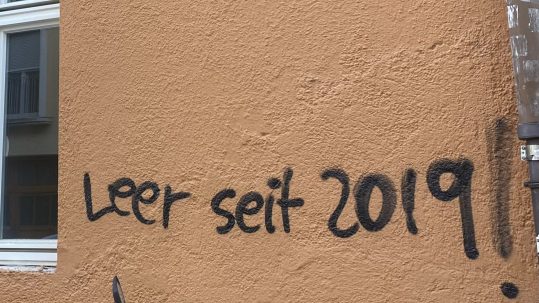 Leer seit 2019!